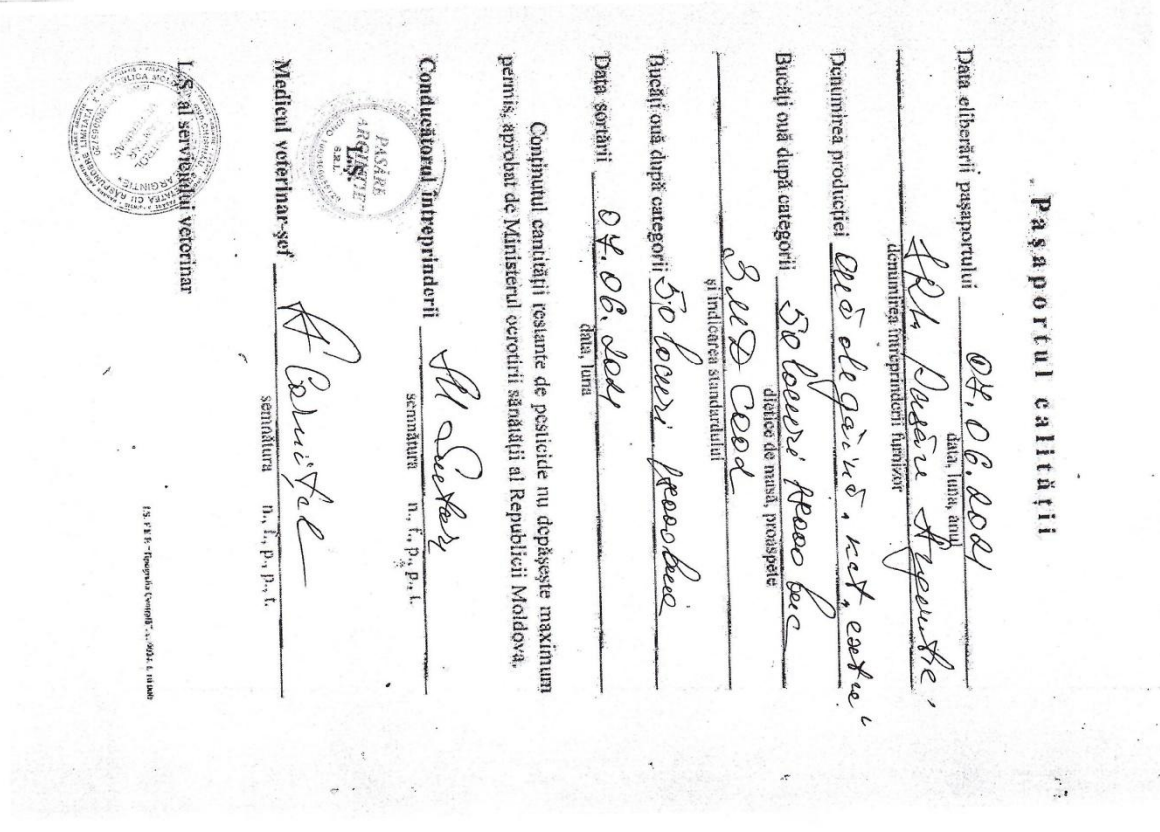 Pașaportul calității
Data eliberării pașaportului 07.06.2021
data, luna, anul
SRL Pasăre Argintie"
denumirea întreprinderii furnizor
Denumirea producției ouă de găină, kat, extra"
Bucăți ouă după categorii 50 locuri buc
dietice de masă, proaspete
și indicarea standardului
Bucăți ouă după categorii 50 locuri
Data sortării 07.06.2021
data, luna
Conținutul cantității restante de pesticide nu depășește maximum
permis, aprobat de Ministerul ocrotirii sănătății al Republicii Moldova.
PASĂRE
ARGINTIE"
S.R.L.
L.Ș.
Conducătorul întreprinderii
semnătura n., f., p., p., t.
Medicul veterinar-șef
semnătura n., f., p., p., t.
L.Ș. al serviciului veterinar